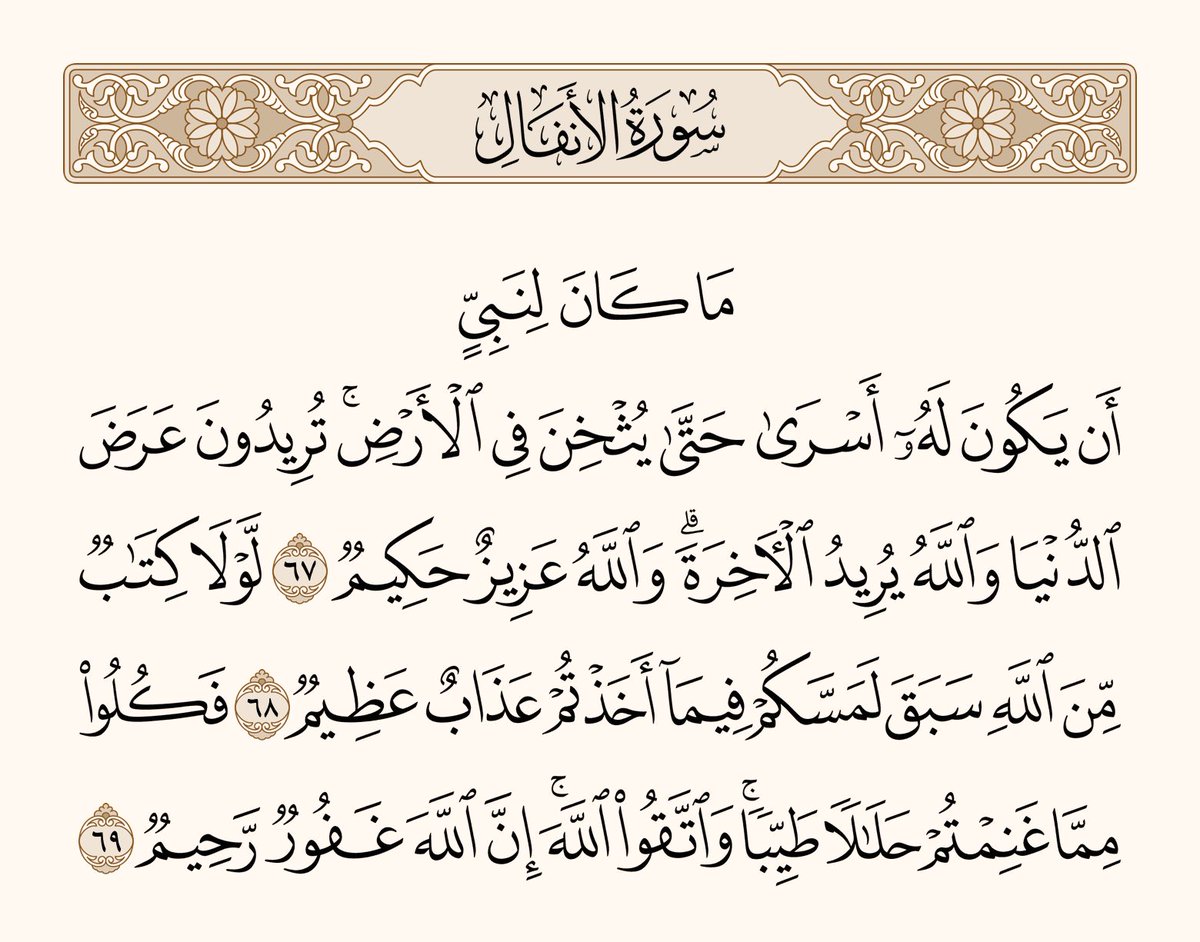 سُورَةُ الأَنفَالِ
مَا كَانَ لِنَبِيٍّ
أَن يَكُونَ لَهُۥٓ أَسۡرَىٰ حَتَّىٰ يُثۡخِنَ فِي ٱلۡأَرۡضِۚ تُرِيدُونَ عَرَضَ
ٱلدُّنۡيَا وَٱللَّهُ يُرِيدُ ٱلۡأٓخِرَةَۗ وَٱللَّهُ عَزِيزٌ حَكِيمٞ ٦٧ لَّوۡلَا كِتَٰبٞ
مِّنَ ٱللَّهِ سَبَقَ لَمَسَّكُمۡ فِيمَآ أَخَذۡتُمۡ عَذَابٌ عَظِيمٞ ٦٨ فَكُلُواْ
مِمَّا غَنِمۡتُمۡ حَلَٰلٗا طَيِّبٗاۚ وَٱتَّقُواْ ٱللَّهَۚ إِنَّ ٱللَّهَ غَفُورٞ رَّحِيمٞ ٦٩